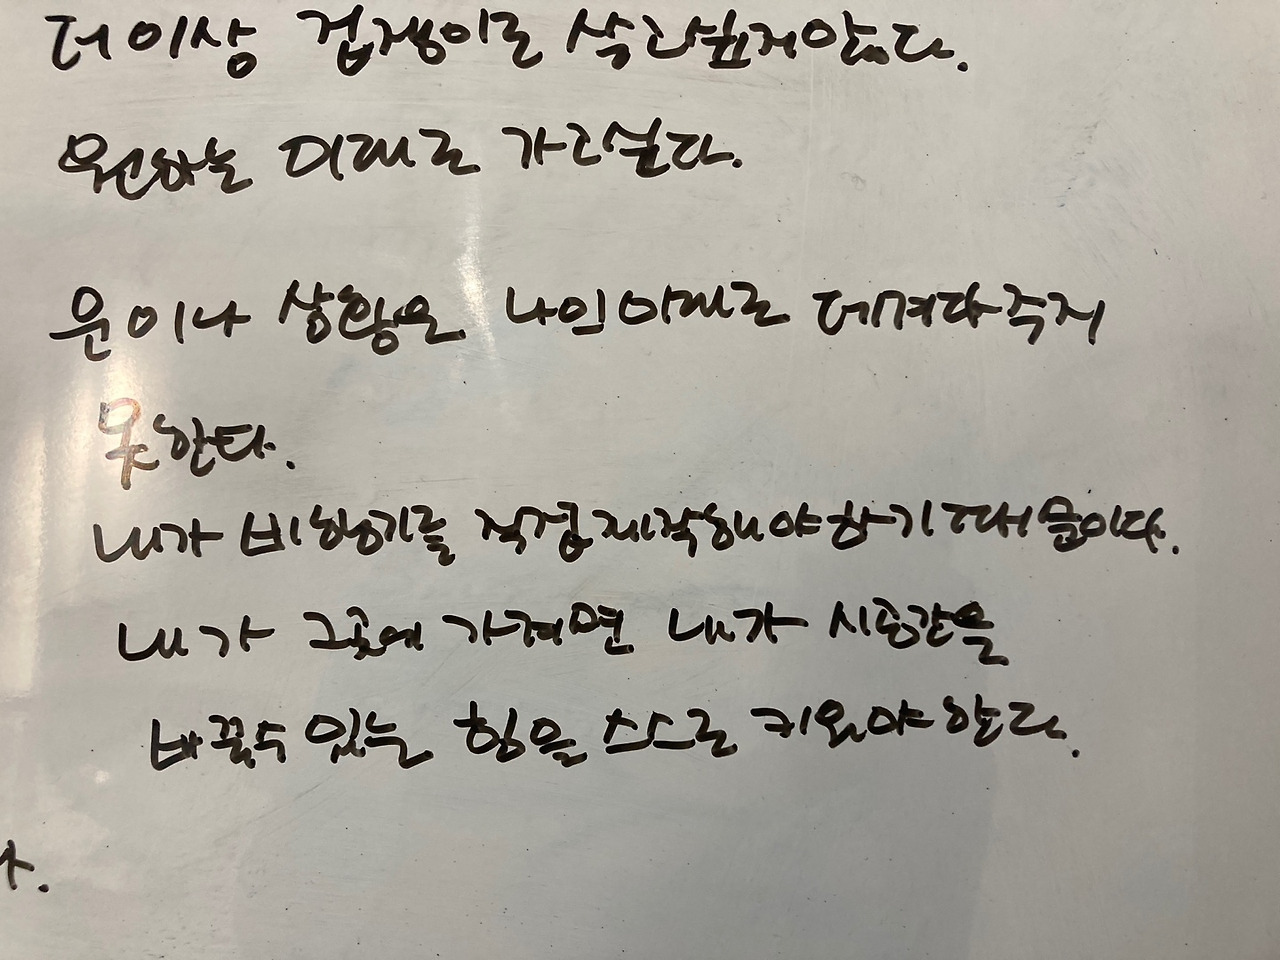 더 이상 겁쟁이로 살고싶지않다.
원하는 미래로 가고싶다.
운이나 상황은 나의미래로 데려다주지
못한다.
내가 비행기를 직접제작해야하기 때문이다.
내가 그곳에 가려면 내가 시공간을
바꿀수 있는 힘을 스스로 키워야 한다.